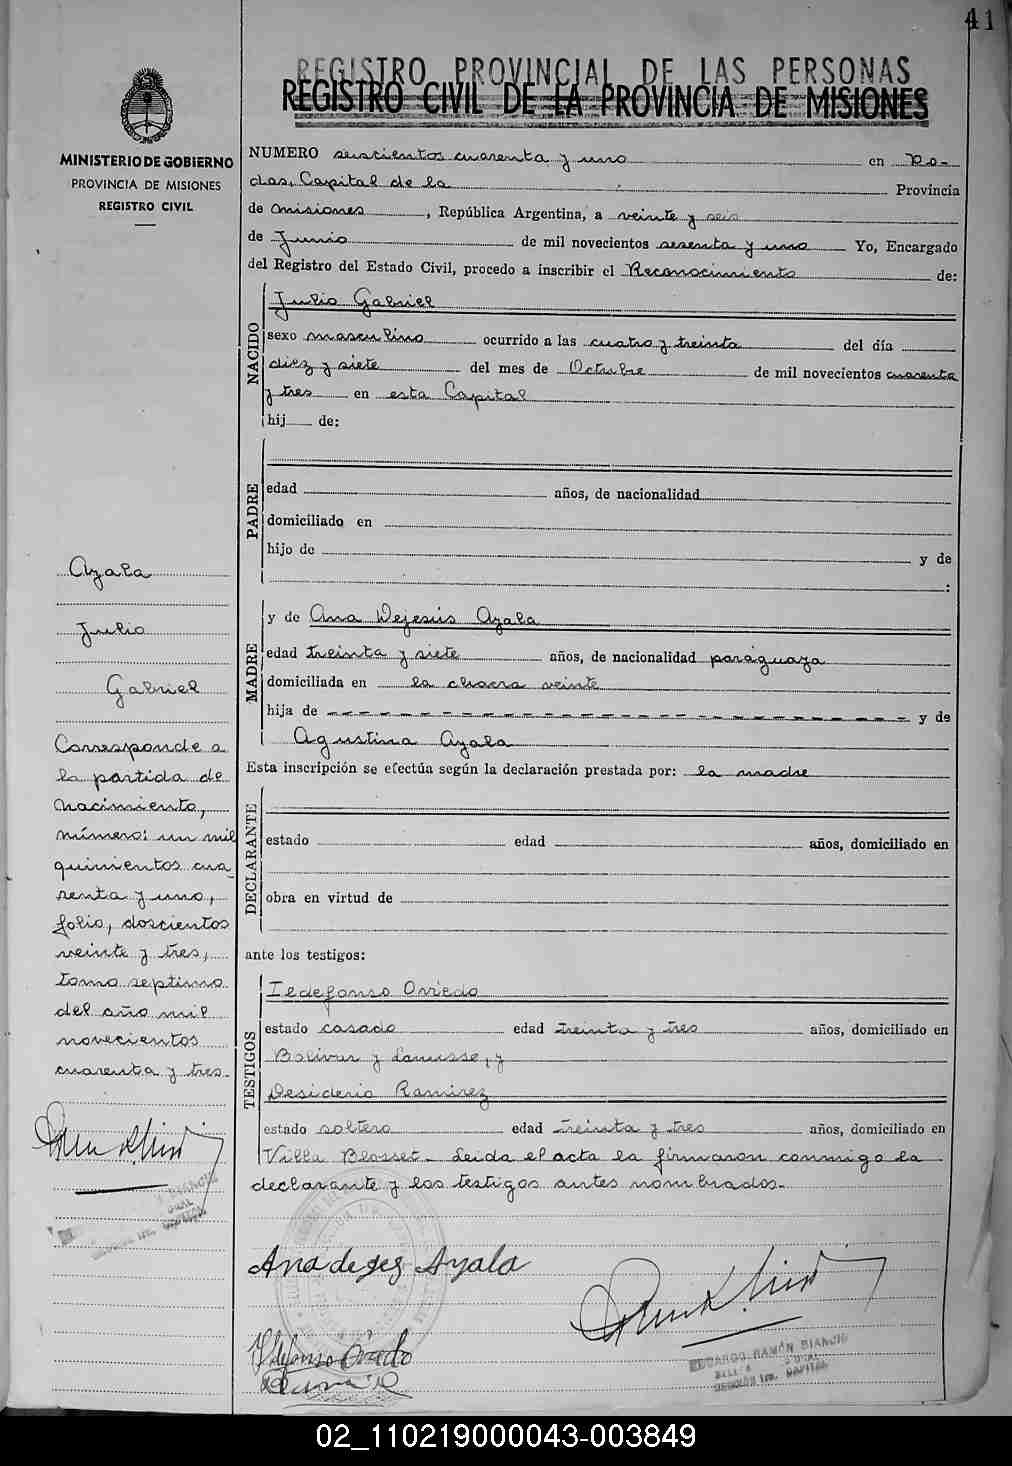 41
REGISTRO PROVINCIAL DE LAS PERSONAS
REGISTRO CIVIL DE LA PROVINCIA DE MISIONES
MINISTERIO DE GOBIERNO
PROVINCIA DE MISIONES
REGISTRO CIVIL
NUMERO seiscientos cuarenta y uno en Po-
das, Capital de la Provincia
de Misiones, República Argentina, a veinte y seis
de Junio de mil novecientos sesenta y uno Yo, Encargado
del Registro del Estado Civil, procedo a inscribir el Reconocimiento de:
NACIDO
Julio Gabriel
sexo masculino ocurrido a las cuatro y treinta del día
diez y siete del mes de Octubre de mil novecientos cuarenta
y tres en esta Capital
hij de:
PADRE
edad años, de nacionalidad
domiciliado en
hijo de y de
:
MADRE
y de Ana Dejesús Ayala
edad treinta y siete años, de nacionalidad paraguaya
domiciliada en la chacra veinte
hija de y de
Agustina Ayala
Esta inscripción se efectúa según la declaración prestada por: la madre
DECLARANTE
estado edad años, domiciliado en
obra en virtud de
ante los testigos:
TESTIGOS
Ildefonso Oviedo
estado casado edad treinta y tres años, domiciliado en
Bolivar y Lanusse, y
Desiderio Ramirez
estado soltero edad treinta y tres años, domiciliado en
Villa Blosset - Leida el acta la firmaron conmigo la
declarante y los testigos antes nombrados.-
Ayala
Julio
Gabriel
Corresponde a
la partida de
nacimiento,
número: un mil
quinientos cua
renta y uno,
folio, doscientos
veinte y tres,
tomo septimo
del año mil
novecientos
cuarenta y tres.
Ana de jes Ayala
Ildefonso Oviedo
EDUARDO RAMÓN BIANCHI
SECCIÓN 1ra. CAPITAL
02_110219000043-003849